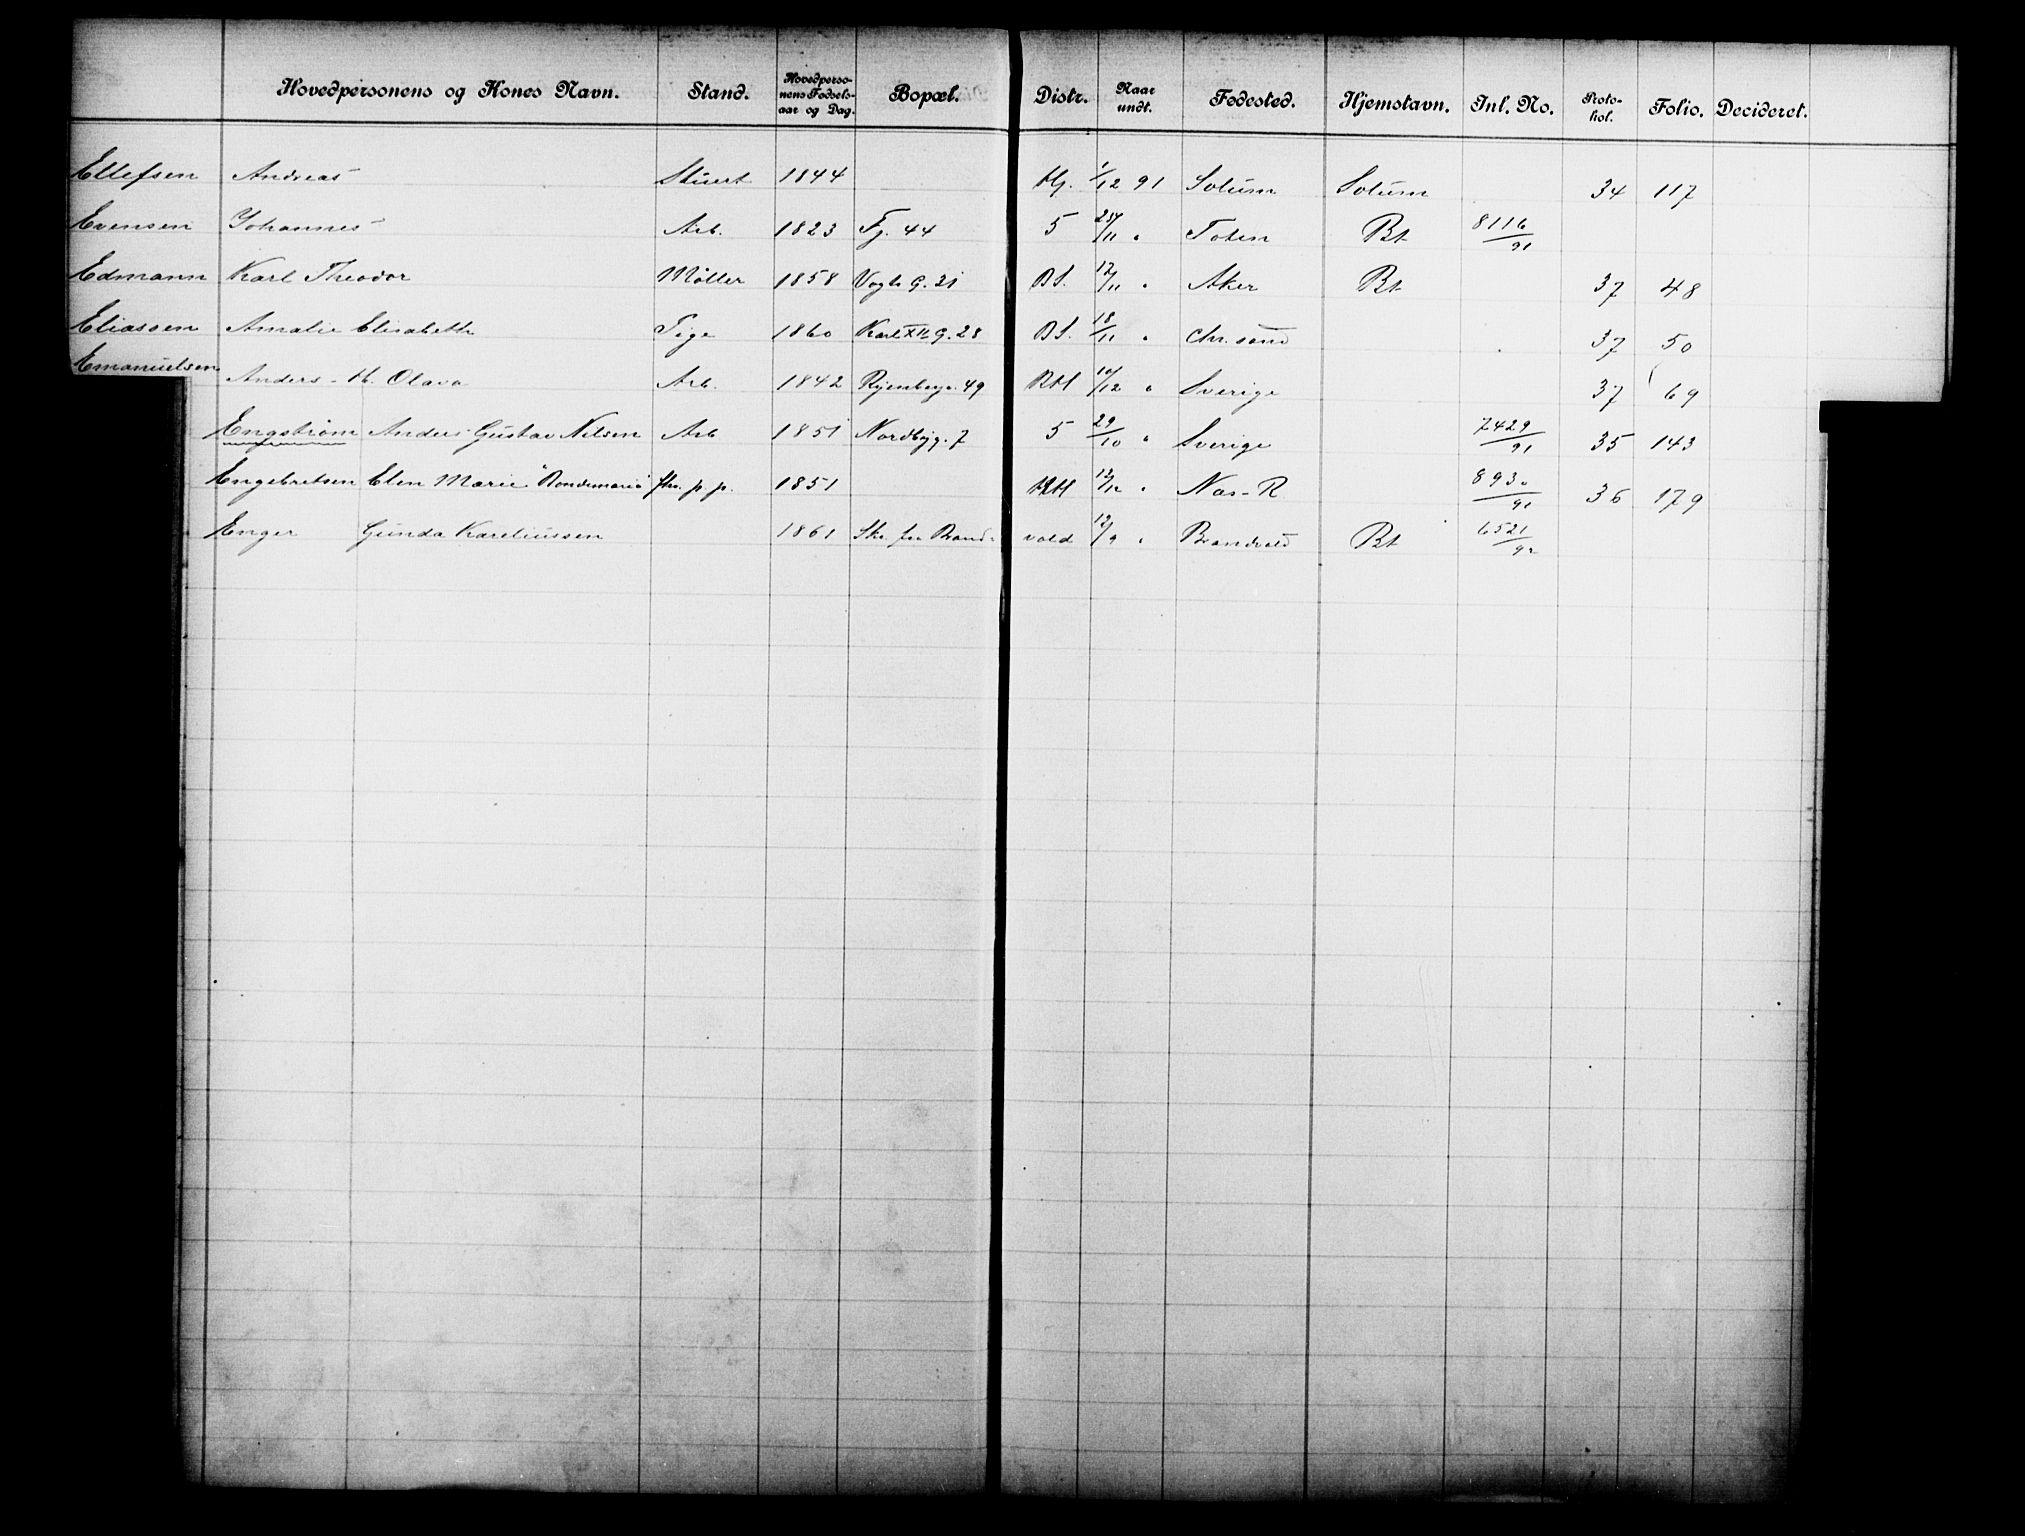 Hovedpersonens og Kones Navn. Stand. Hovedperso-nens Fødsels-aar og Dag. Bopæl. Distr. Naar undt. Fødested. Hjemstavn. Inl. No. Proto-kol. Folio. Decideret.
Ellefsen Andreas Stuert 1844 1/12 91 Solum Solum 34 117
Evensen Johannes Arb. 1823 Fj. 44 5 /11 " Toten Bt 8116/91
Edmann Karl Theodor Møller 1858 Vogts G. 31 DS. 12/11 " Aker Bt 37 48
Eliassen Amalie Elisabeth Pige 1860 Karl XII G. 28 DS. 18/11 " Chr.sand 37 50
Emanuelsen Anders - H. Olava Arb. 1842 Ryenbergv. 49 RH 10/12 " Sverige 37 69
Engstrøm Anders Gustav Nilsen Arb 1851 Nordbyg. 7 5 29/10 " Sverige 7429/91 35 143
Engebretsen Elen Marie "Bondemarie" fhv. p. p. 1851 12/12 " Næs-R 8930/91 36 179
Enger Gunda Kareliussen 1861 Skr. fra Brand-vold 12/9 " Brandvold Bt 6521/92